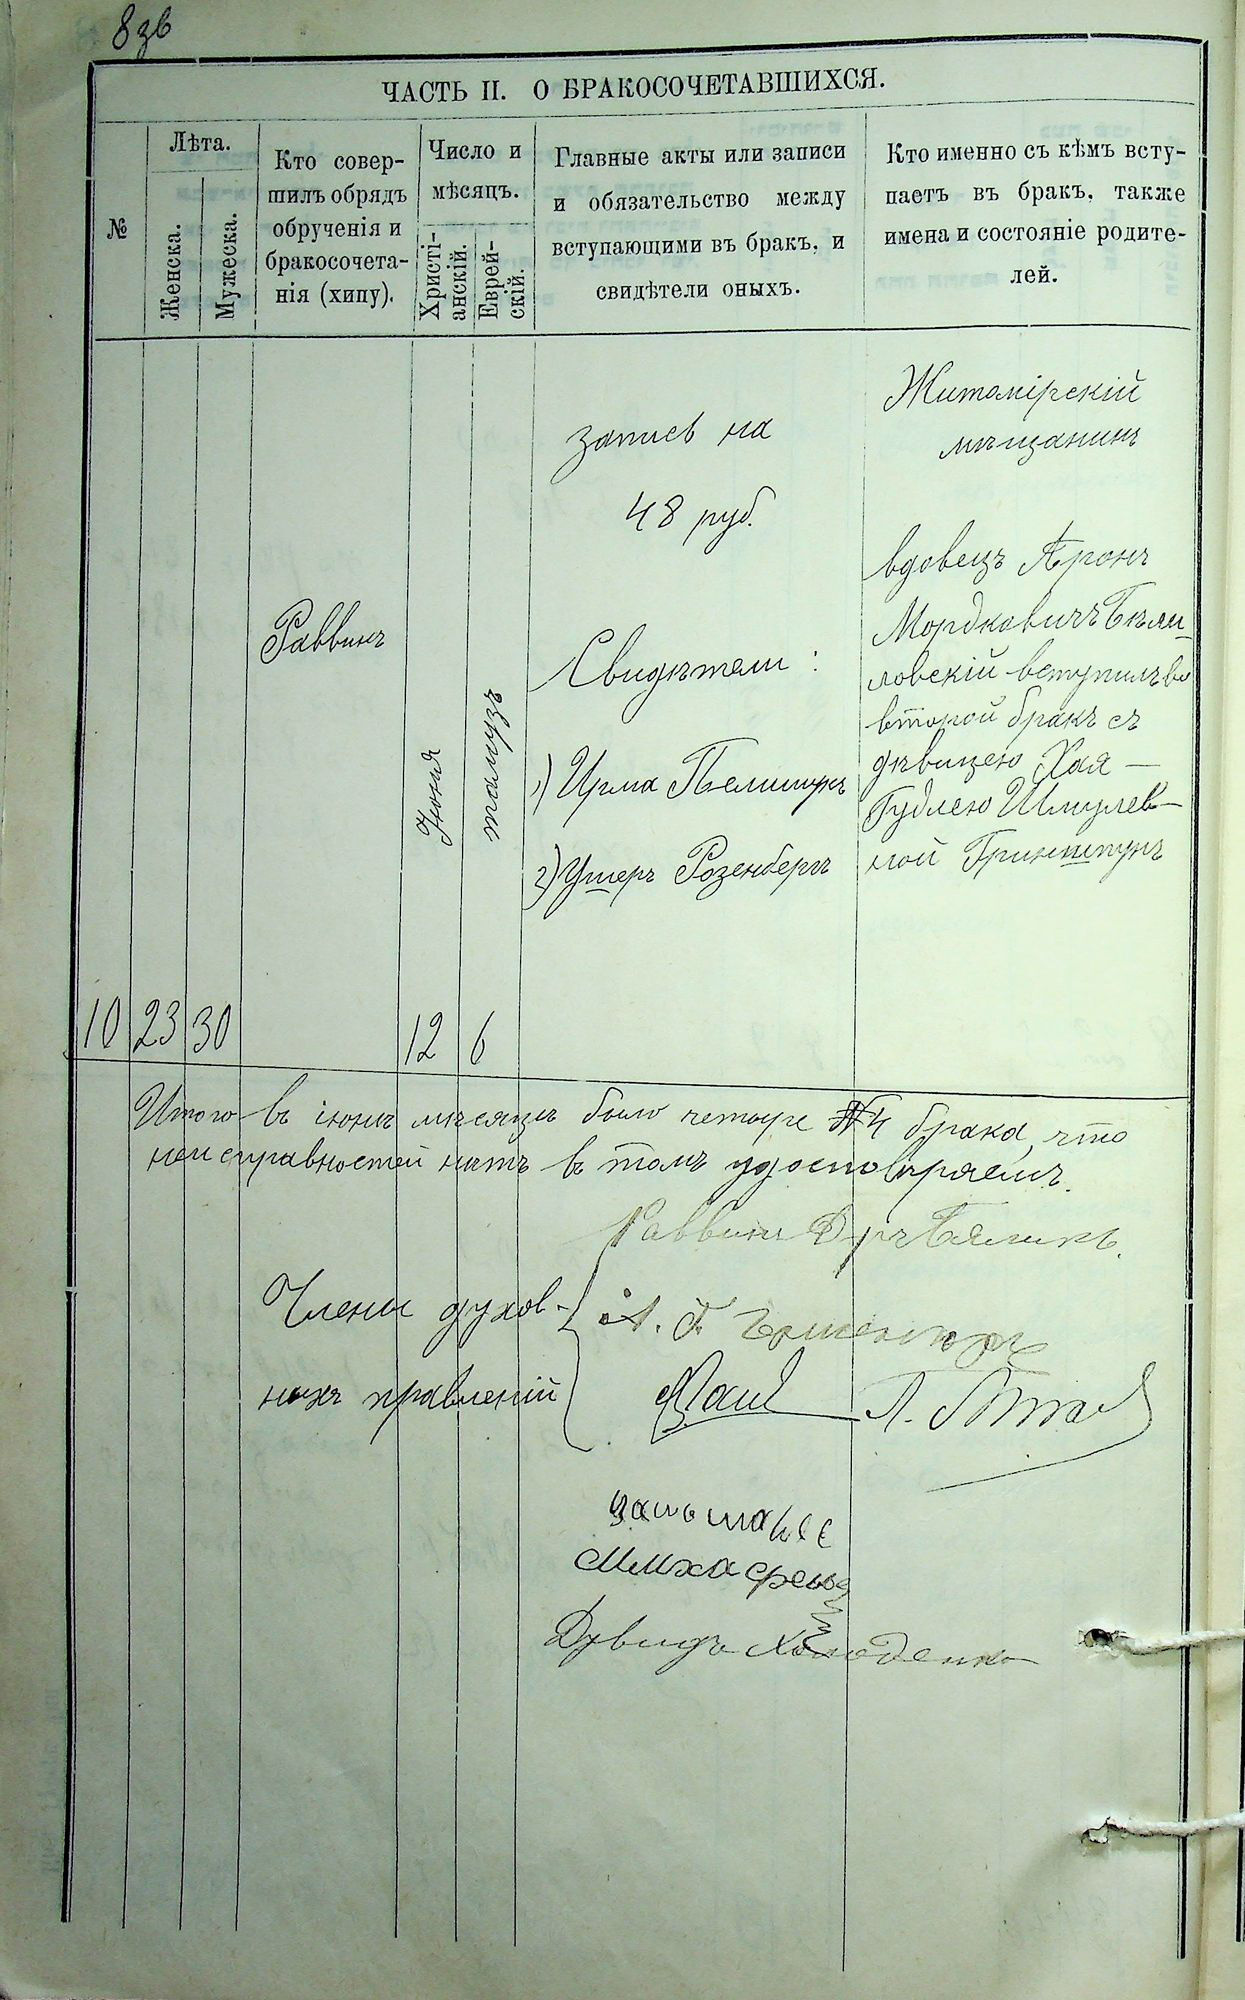 8 зв
ЧАСТЬ II. О БРАКОСОЧЕТАВШИХСЯ.
№
Лѣта.
Женска.
Мужеска.
Кто совер-
шилъ обрядъ
обрученія и
бракосочета-
нія (хипу).
Число и
мѣсяцъ.
Христі-
анскій.
Еврей-
скій.
Главные акты или записи
и обязательство между
вступающими въ бракъ, и
свидѣтели оныхъ.
Кто именно съ кѣмъ всту-
паетъ въ бракъ, также
имена и состояніе родите-
лей.
10
23
30
Раввинъ
Іюня
12
тамузъ
6
запись на
48 руб.
Свидѣтели:
1)
2) Ушеръ Розенбергъ
Житомірскій
мѣщанинъ
вдовецъ Аронъ
Мордковичъ Бѣли-
ловскій вступилъ во
второй бракъ съ
дѣвицею Хая-
Гудлею Шмулев-
ной Гринштунъ
Итого въ іюнѣ мѣсяцѣ было четыре № 4 брака, что
неисправностей нѣтъ въ томъ удостовѣряемъ.
Раввинъ Д-ръ
Члены духов-
ныхъ правленій
Давидъ Холоденко